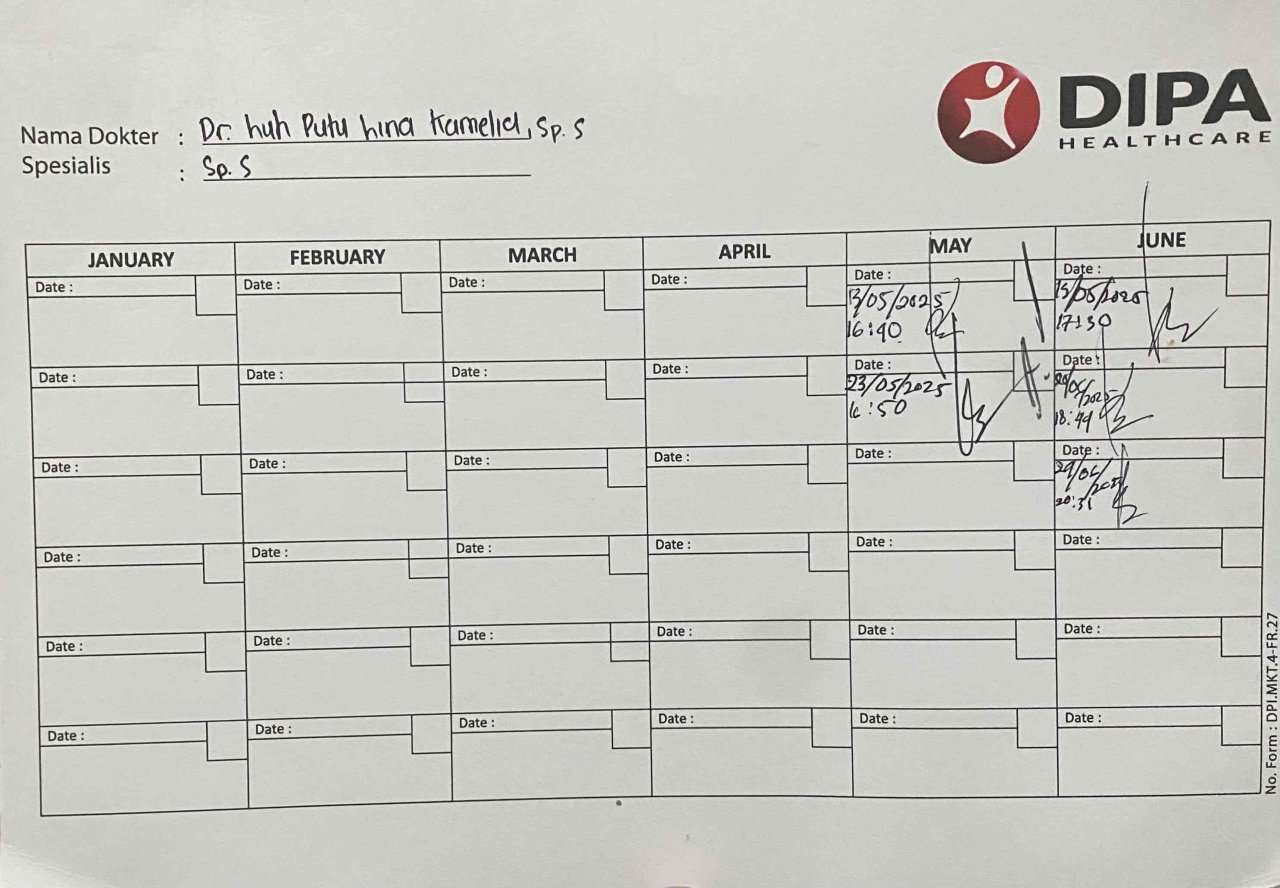 DIPA
HEALTHCARE
Nama Dokter : Dr. Luh Putu Lina Kamelia, Sp. S
Spesialis : Sp. S
JANUARY FEBRUARY MARCH APRIL MAY JUNE
Date : Date : Date : Date : Date : Date :
13/05/2025 13/05/2025
16:40 17:30
Date : Date : Date : Date : Date : Date :
23/05/2025
:50 18:49
Date : Date : Date : Date : Date : Date :
20:31
Date : Date : Date : Date : Date : Date :
Date : Date : Date : Date : Date : Date :
Date : Date : Date : Date : Date : Date :
No. Form : DPI.MKT.4-FR.27